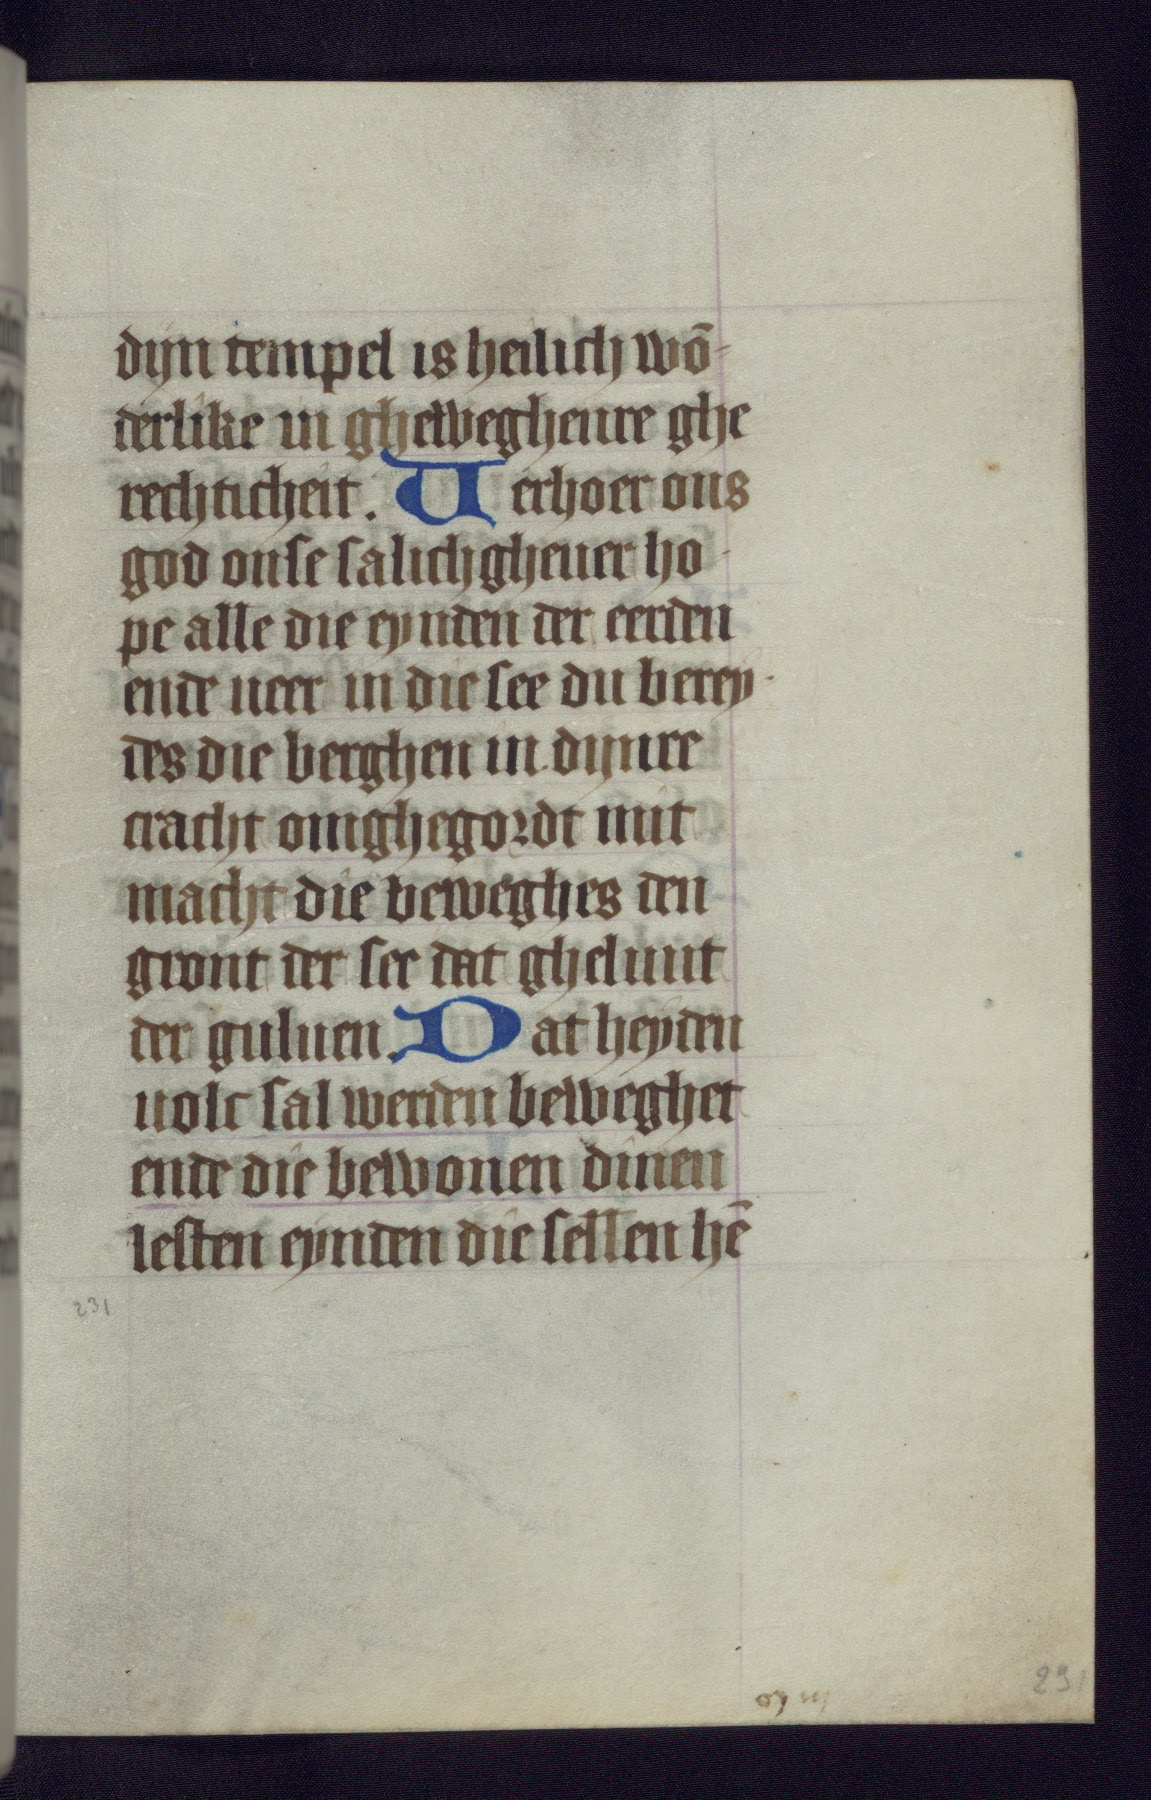 dijn tempel is heilich wō-
derlike in ghewegheure ghe
rechticheit. Uerhoer ons
god onse salichgheuer ho-
pe alle die eynden der eerden
ende ueer in die see du berey-
des die berghen in dijnre
cracht omghegordt mit
macht die beweghes den
gront der see dat gheluut
der guluen. Dat heyden
uolc sal werden beweghet
ende die bewonen dinen
lesten eynden die sellen hē
231
231